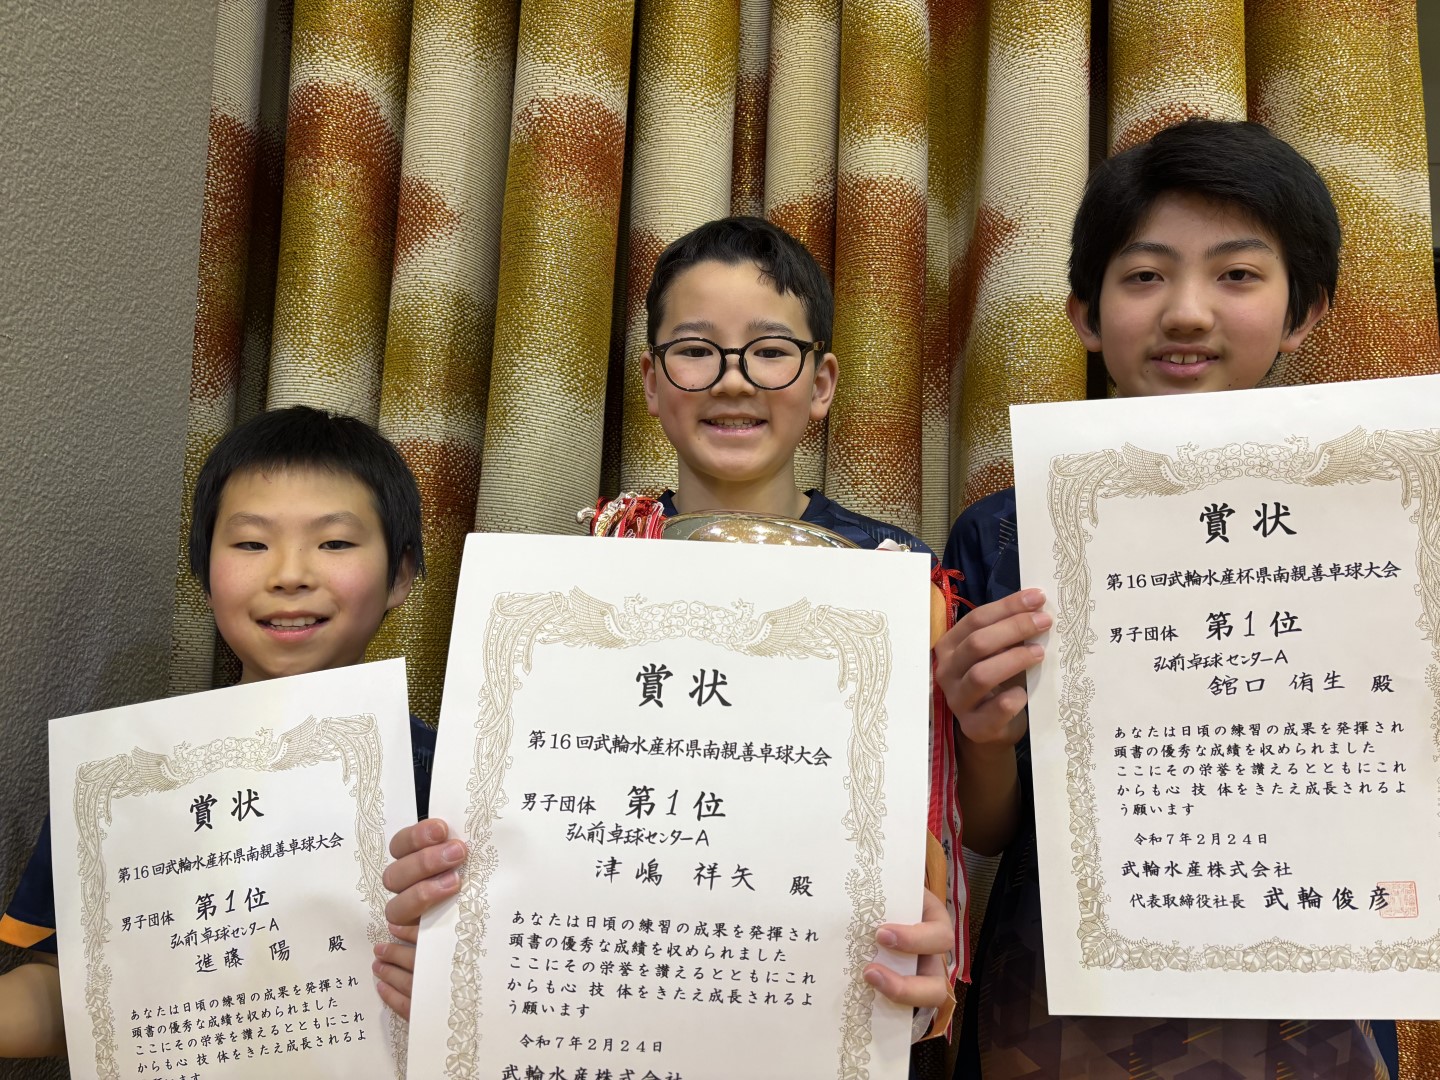 賞状
第16回武輪水産杯県南親善卓球大会
男子団体 第1位
弘前卓球センターA
進藤 陽 殿
あなたは日頃の練習の成果を発揮され
頭書の優秀な成績を収められました
ここにその栄誉を讃えるとともにこれ
からも心 技 体をきたえ成長されるよ
う願います
賞状
第16回武輪水産杯県南親善卓球大会
男子団体 第1位
弘前卓球センターA
津嶋 祥矢 殿
あなたは日頃の練習の成果を発揮され
頭書の優秀な成績を収められました
ここにその栄誉を讃えるとともにこれ
からも心 技 体をきたえ成長されるよ
う願います
令和7年2月24日
武輪水産株式会社
賞状
第16回武輪水産杯県南親善卓球大会
男子団体 第1位
弘前卓球センターA
舘口 侑生 殿
あなたは日頃の練習の成果を発揮され
頭書の優秀な成績を収められました
ここにその栄誉を讃えるとともにこれ
からも心 技 体をきたえ成長されるよ
う願います
令和7年2月24日
武輪水産株式会社
代表取締役社長 武輪俊彦